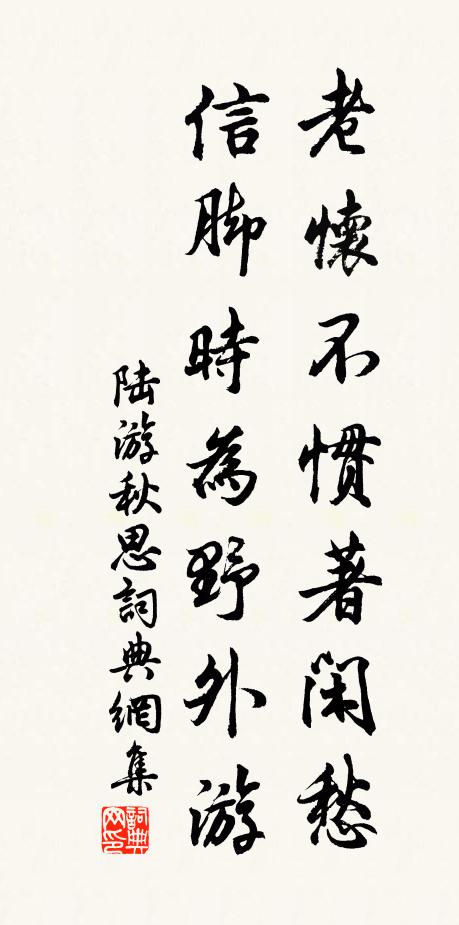 老懷不慣著閑愁
信脚時為野外游
陆游秋思詞典網集
詞典
网印